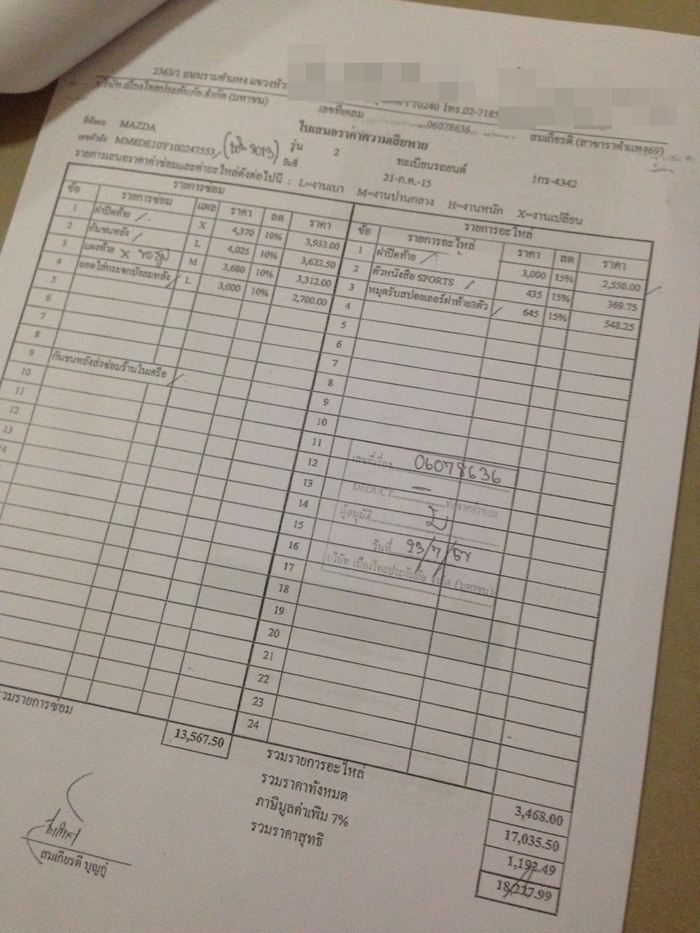 2363/1 ถนนรามคำแหง แขวงหัว
10240 โทร.02-7185
บริษัท.เมืองไทยประกันภัย.จำกัด (มหาชน)
เลขที่เคลม 06078636 สมเกียรติ (สาขารามคำแหง69)
ใบเสนอราคาความเสียหาย
ยี่ห้อรถ MAZDA รุ่น 2 ทะเบียนรถยนต์ 1กร-4342
เลขตัวถัง MM8DE10Y100247553 วันที่ 21-ก.ค.-15
รายการเสนอราคาค่าซ่อมและค่าอะไหล่ดังต่อไปนี้ : L=งานเบา M=งานปานกลาง H=งานหนัก X=งานเปลี่ยน
รายการซ่อม
ข้อ รายการซ่อม แผล ราคา ลด ราคา
1 ฝาปิดท้าย X 4,370 10% 3,933.00
2 กันชนหลัง L 4,025 10% 3,622.50
3 แผงท้าย M 3,680 10% 3,312.00
4 ถอดใส่กระจกบังลมหลัง L 3,000 10% 2,700.00
5
6
7
8
9 กันชนหลังส่งซ่อมร้านในเครือ
10
11
12
13
รวมรายการซ่อม 13,567.50
รายการอะไหล่
ข้อ รายการอะไหล่ ราคา ลด ราคา
1 ฝาปิดท้าย 3,000 15% 2,550.00
2 ตัวหนังสือ SPORTS 435 15% 369.75
3 หมุดรับสปอยเลอร์ฝาท้าย3ตัว 645 15% 548.25
4
5
6
7
8
9
10
11
12
13
14
15
16
17
18
19
20
21
22
23
24
เลขที่เรื่อง 06078636
DEDUCT
ผู้อนุมัติ
วันที่ 23/7/58
บริษัท เมืองไทยประกันภัย จำกัด (มหาชน)
รวมรายการอะไหล่ 3,468.00
รวมราคาทั้งหมด 17,035.50
ภาษีมูลค่าเพิ่ม 7% 1,192.49
รวมราคาสุทธิ 18,227.99
สมเกียรติ บุญภู่